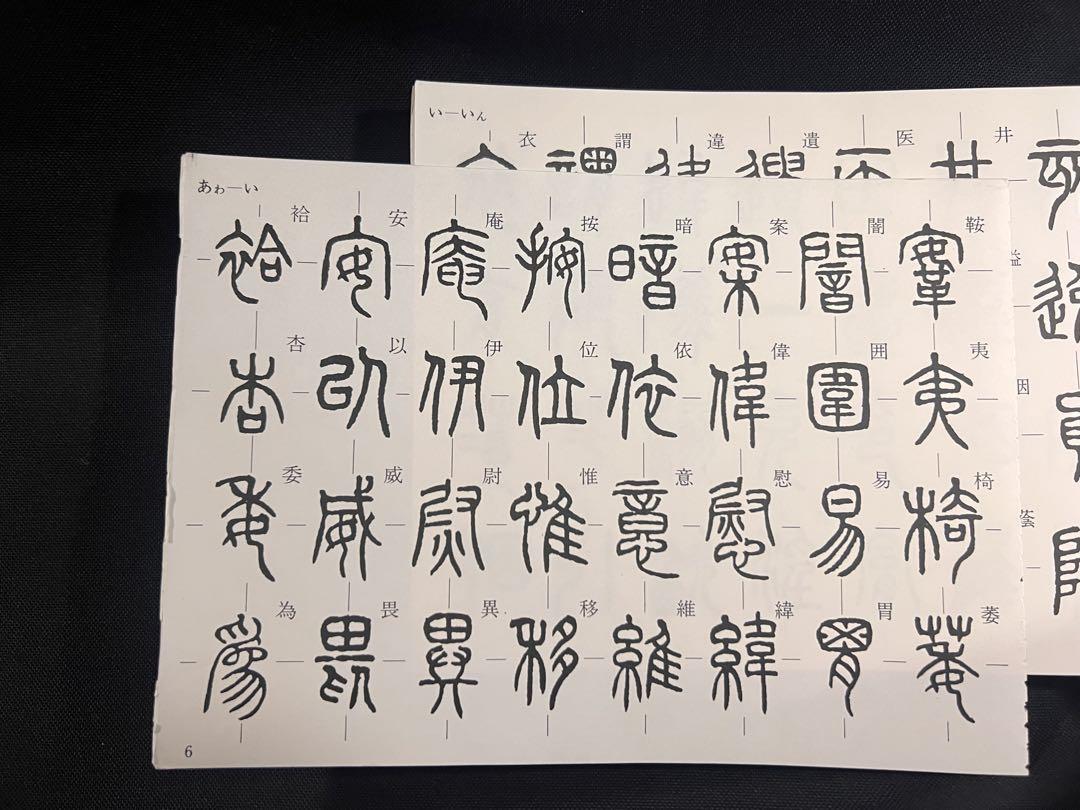 いーいん
衣 謂 違 遺 医 井
あゎーい
袷 安 庵 按 暗 案 闇 鞍
杏 以 伊 位 依 偉 囲 夷
委 威 尉 惟 意 慰 易 椅
為 畏 異 移 維 緯 胃 萎
溢
因
蔭
6